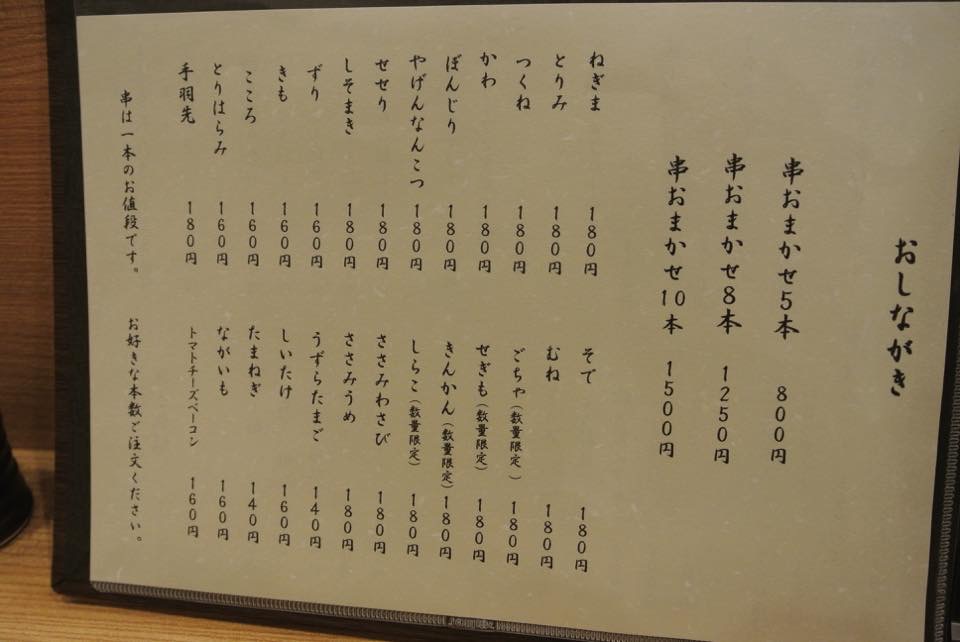 おしながき
串おまかせ5本 800円
串おまかせ8本 1250円
串おまかせ10本 1500円
ねぎま 180円
とりみ 180円
つくね 180円
かわ 180円
ぼんじり 180円
やげんなんこつ 180円
せせり 180円
しそまき 180円
ずり 160円
きも 160円
こころ 160円
とりはらみ 160円
手羽先 180円
そで 180円
むね 180円
ごちゃ(数量限定) 180円
せぎも(数量限定) 180円
きんかん(数量限定) 180円
しらこ(数量限定) 180円
ささみわさび 180円
ささみうめ 180円
うずらたまご 140円
しいたけ 160円
たまねぎ 140円
ながいも 160円
トマトチーズベーコン 160円
串は一本のお値段です。 お好きな本数ご注文ください。